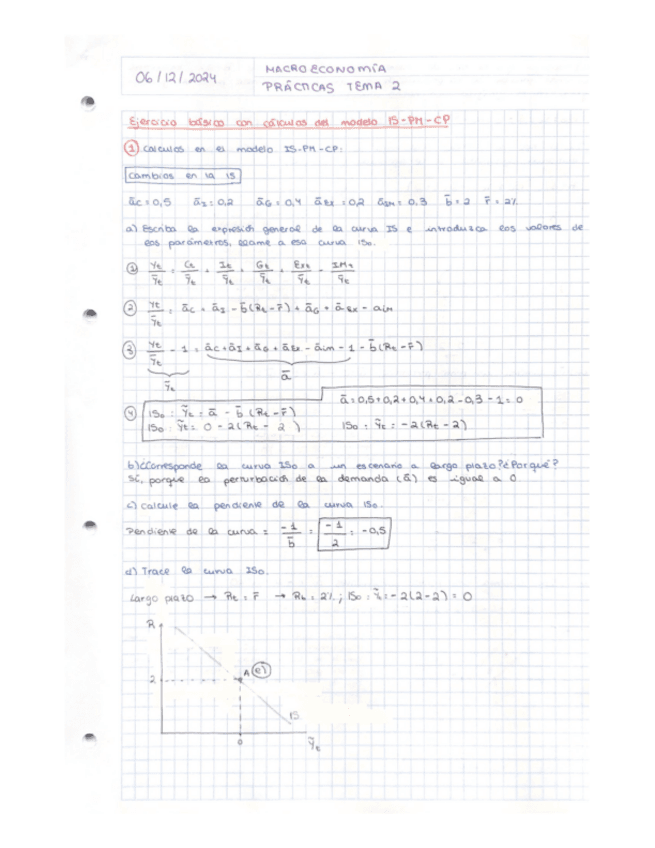 06/12/2024
MACROECONOMÍA
PRÁCTICAS TEMA 2
Ejercicio básico con cálculos del modelo IS-PM-CP
① Cálculos en el modelo IS-PM-CP:
Cambios en la IS
āc = 0,5 āI = 0,2 āG = 0,4 āEx = 0,2 āIM = 0,3 b̄ = 2 r̄ = 2%
a) Escriba la expresión general de la curva IS e introduzca los valores de
los parámetros, llame a esa curva IS₀.
① Yt/Ȳt = Ct/Ȳt + It/Ȳt + Gt/Ȳt + Ext/Ȳt - IMt/Ȳt
② Yt/Ȳt = āc + āI - b̄(Rt - r̄) + āG + āEx - āim
③ Yt/Ȳt - 1 = āc + āI + āG + āEx - āim - 1 - b̄(Rt - r̄)
Ỹt ā
ā = 0,5 + 0,2 + 0,4 + 0,2 - 0,3 - 1 = 0
④ IS₀ : Ỹt = ā - b̄ (Rt - r̄)
IS₀ : Ỹt = 0 - 2(Rt - 2) IS₀ : Ỹt = -2(Rt - 2)
b) ¿Corresponde la curva IS₀ a un escenario a largo plazo? ¿Por qué?
Sí, porque la perturbación de la demanda (ā) es igual a 0
c) Calcule la pendiente de la curva IS₀.
Pendiente de la curva = -1/b̄ = -1/2 = -0,5
d) Trace la curva IS₀.
Largo plazo → Rt = r̄ → Rt = 2% ; IS₀ : Ỹt = -2(2-2) = 0
R
A e)
2
IS
0
Ỹt